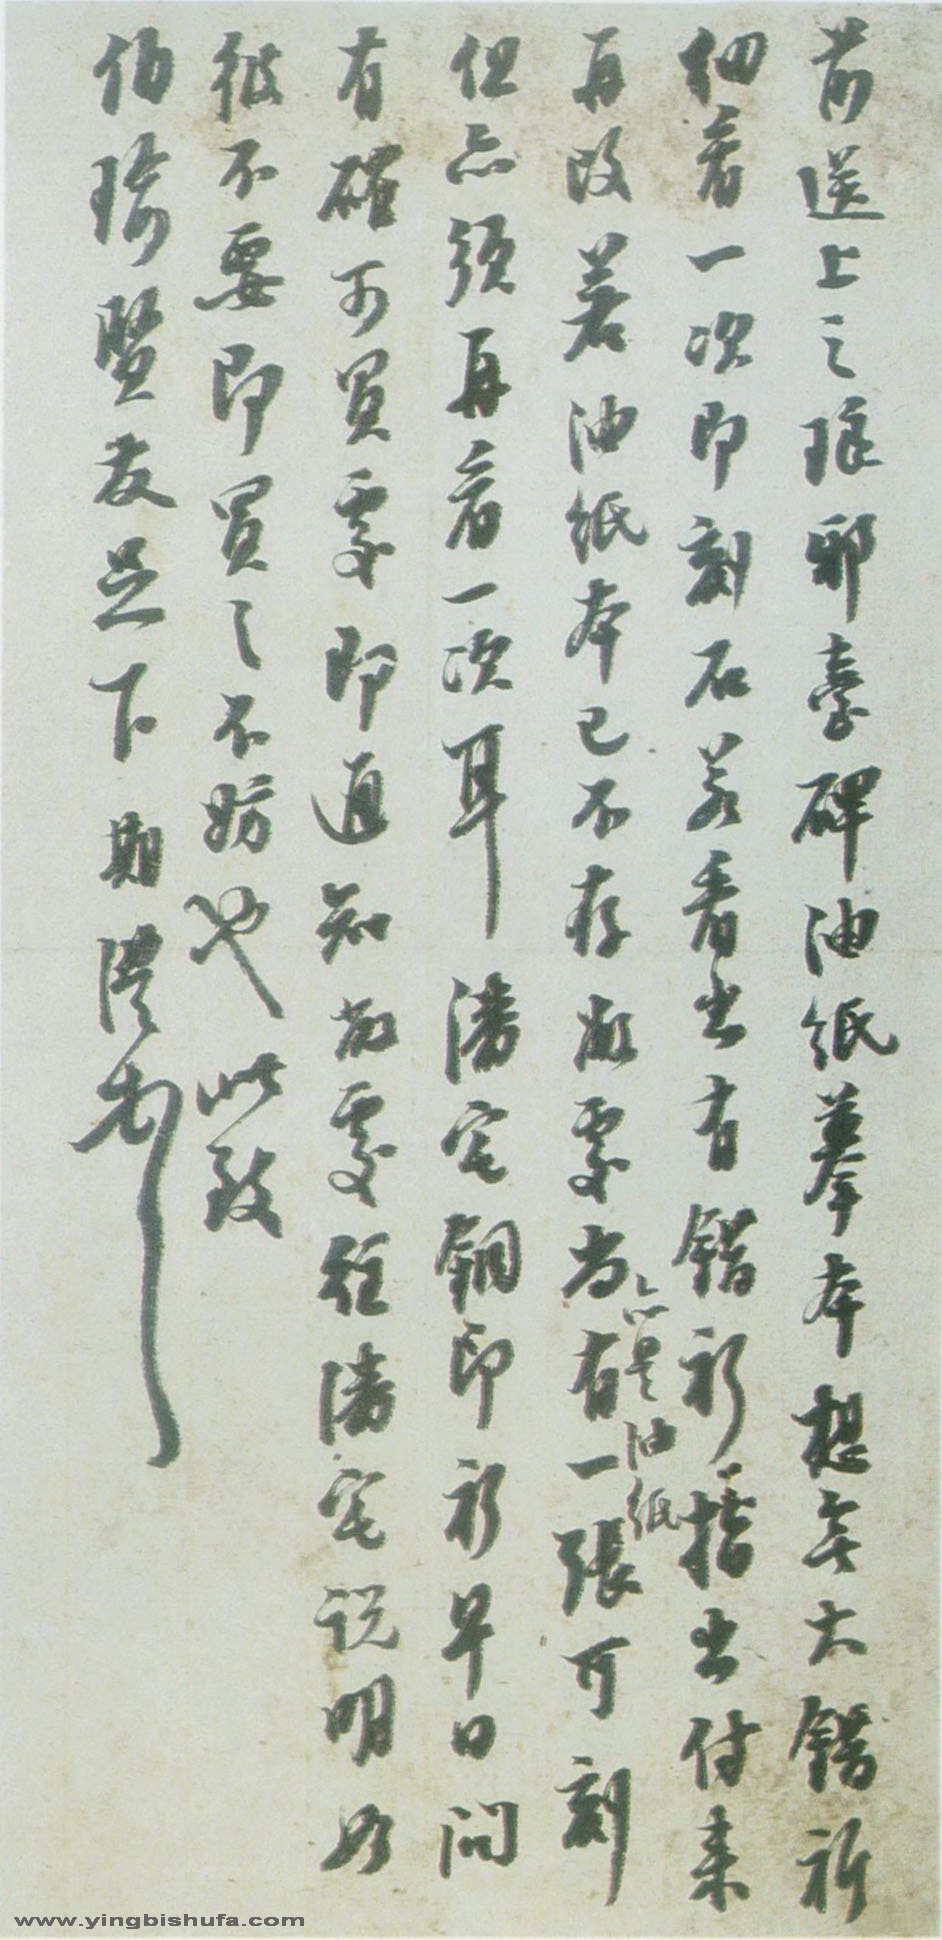 前送上之琅邪臺碑油紙摹本想無大錯祈
細看一次即刻石若看出有錯祈指出付來
再改若油紙本已不存敝處尚有一張可刻
亦是油紙
但亦須再看一次耳潘宅銅印祈早日問
有確可買處即通知敝處往潘宅說明如
彼不要即買之不妨也此致
伯瑜賢友足下期澧
www.yingbishufa.com